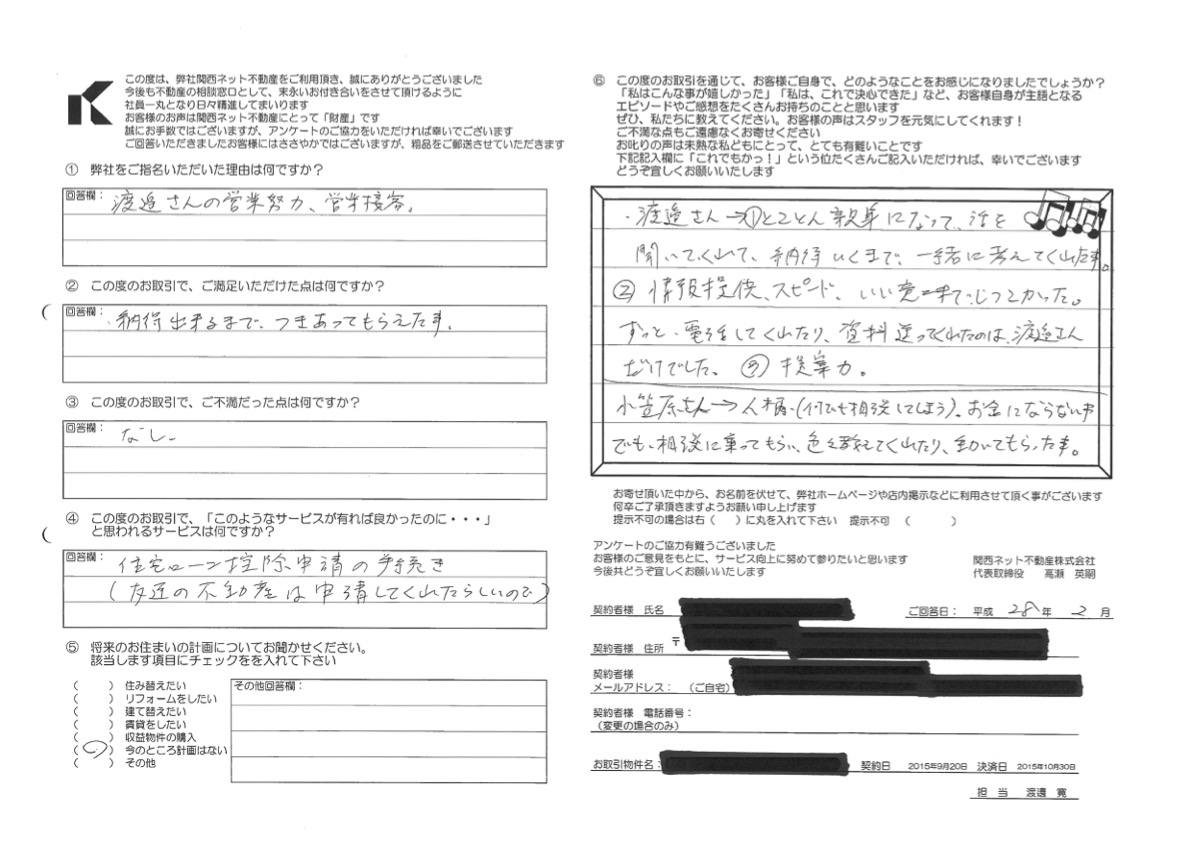 この度は、弊社関西ネット不動産をご利用頂き、誠にありがとうございました
今後も不動産の相談窓口として、末永いお付き合いをさせて頂けるように
社員一丸となり日々精進してまいります
お客様のお声は関西ネット不動産にとって「財産」です
誠にお手数ではございますが、アンケートのご協力をいただければ幸いでございます
ご回答いただきましたお客様にはささやかではございますが、粗品をご郵送させていただきます
① 弊社をご指名いただいた理由は何ですか？
回答欄：
渡邉さんの営業努力、営業接客。
② この度のお取引で、ご満足いただけた点は何ですか？
回答欄：
・納得出来るまで、つきあってもらえた事。
③ この度のお取引で、ご不満だった点は何ですか？
回答欄：
なし
④ この度のお取引で、「このようなサービスが有れば良かったのに・・・」
と思われるサービスは何ですか？
回答欄：
住宅ローン控除申請の手続き
（友達の不動産は申請してくれたらしいので）
⑤ 将来のお住まいの計画についてお聞かせください。
該当します項目にチェックをを入れて下さい
（　　）住み替えたい
（　　）リフォームをしたい
（　　）建て替えたい
（　　）賃貸をしたい
（　　）収益物件の購入
（　　）今のところ計画はない
（　　）その他
その他回答欄：
⑥ この度のお取引を通じて、お客様ご自身で、どのようなことをお感じになりましたでしょうか？
「私はこんな事が嬉しかった」「私は、これで決心できた」など、お客様自身が主語となる
エピソードやご感想をたくさんお持ちのことと思います
ぜひ、私たちに教えてください。お客様の声はスタッフを元気にしてくれます！
ご不満な点もご遠慮なくお寄せください
お叱りの声は未熟な私どもにとって、とても有難いことです
下記記入欄に「これでもかっ！」という位たくさんご記入いただければ、幸いでございます
どうぞ宜しくお願いいたします
・渡邉さん→①とことん親身になって、話を
聞いてくれて、納得いくまで、一緒に考えてくれた事。
② 情報提供、スピード、いい
ずっと、電話をしてくれたり、資料送ってくれたのは、渡邉さん
だけでした。 ③ 提案力。
小笠原さん→人柄・(何でも相談してしまう)。お金にならない事
でも、相談に乗ってもらい、色々教えてくれたり、動いてもらった事。
お寄せ頂いた中から、お名前を伏せて、弊社ホームページや店内掲示などに利用させて頂く事がございます
何卒ご了承頂きますようお願い申し上げます
提示不可の場合は右（　）に丸を入れて下さい　提示不可　（　　　）
アンケートのご協力有難うございました
お客様のご意見をもとに、サービス向上に努めて参りたいと思います
今後共どうぞ宜しくお願いいたします
関西ネット不動産株式会社
代表取締役　高瀬　英嗣
契約者様　氏名
ご回答日：　平成　28　年　2　月
契約者様　住所　〒
契約者様
メールアドレス：　（ご自宅）
契約者様　電話番号：
（変更の場合のみ）
お取引物件名：
契約日　2015年9月20日　決済日　2015年10月30日
担　当　渡邉　寛